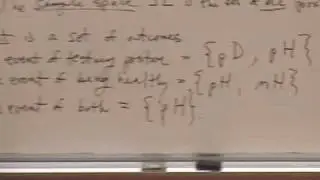 sample space Ω is the set of all
is a set of outcomes
event of testing positive = {pD, pH}
event of being healthy = {pH, nH}
event of both = {pH}